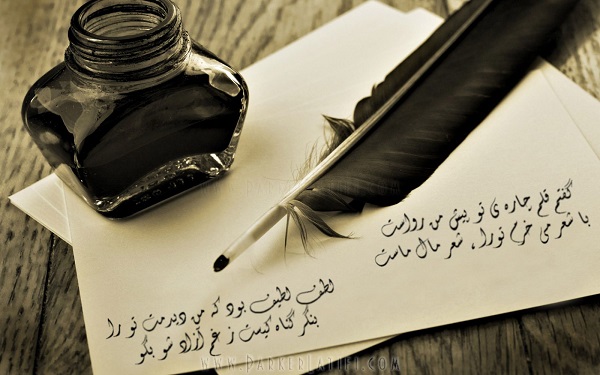 گفتم قلم چاره ی تو پیش من رواست
با شعر می خرم تورا ، شعر مال ماست
لطف لطیف بود که من دیدمت تو را
بنگر گناه کیست ز غم آزاد شو بگو